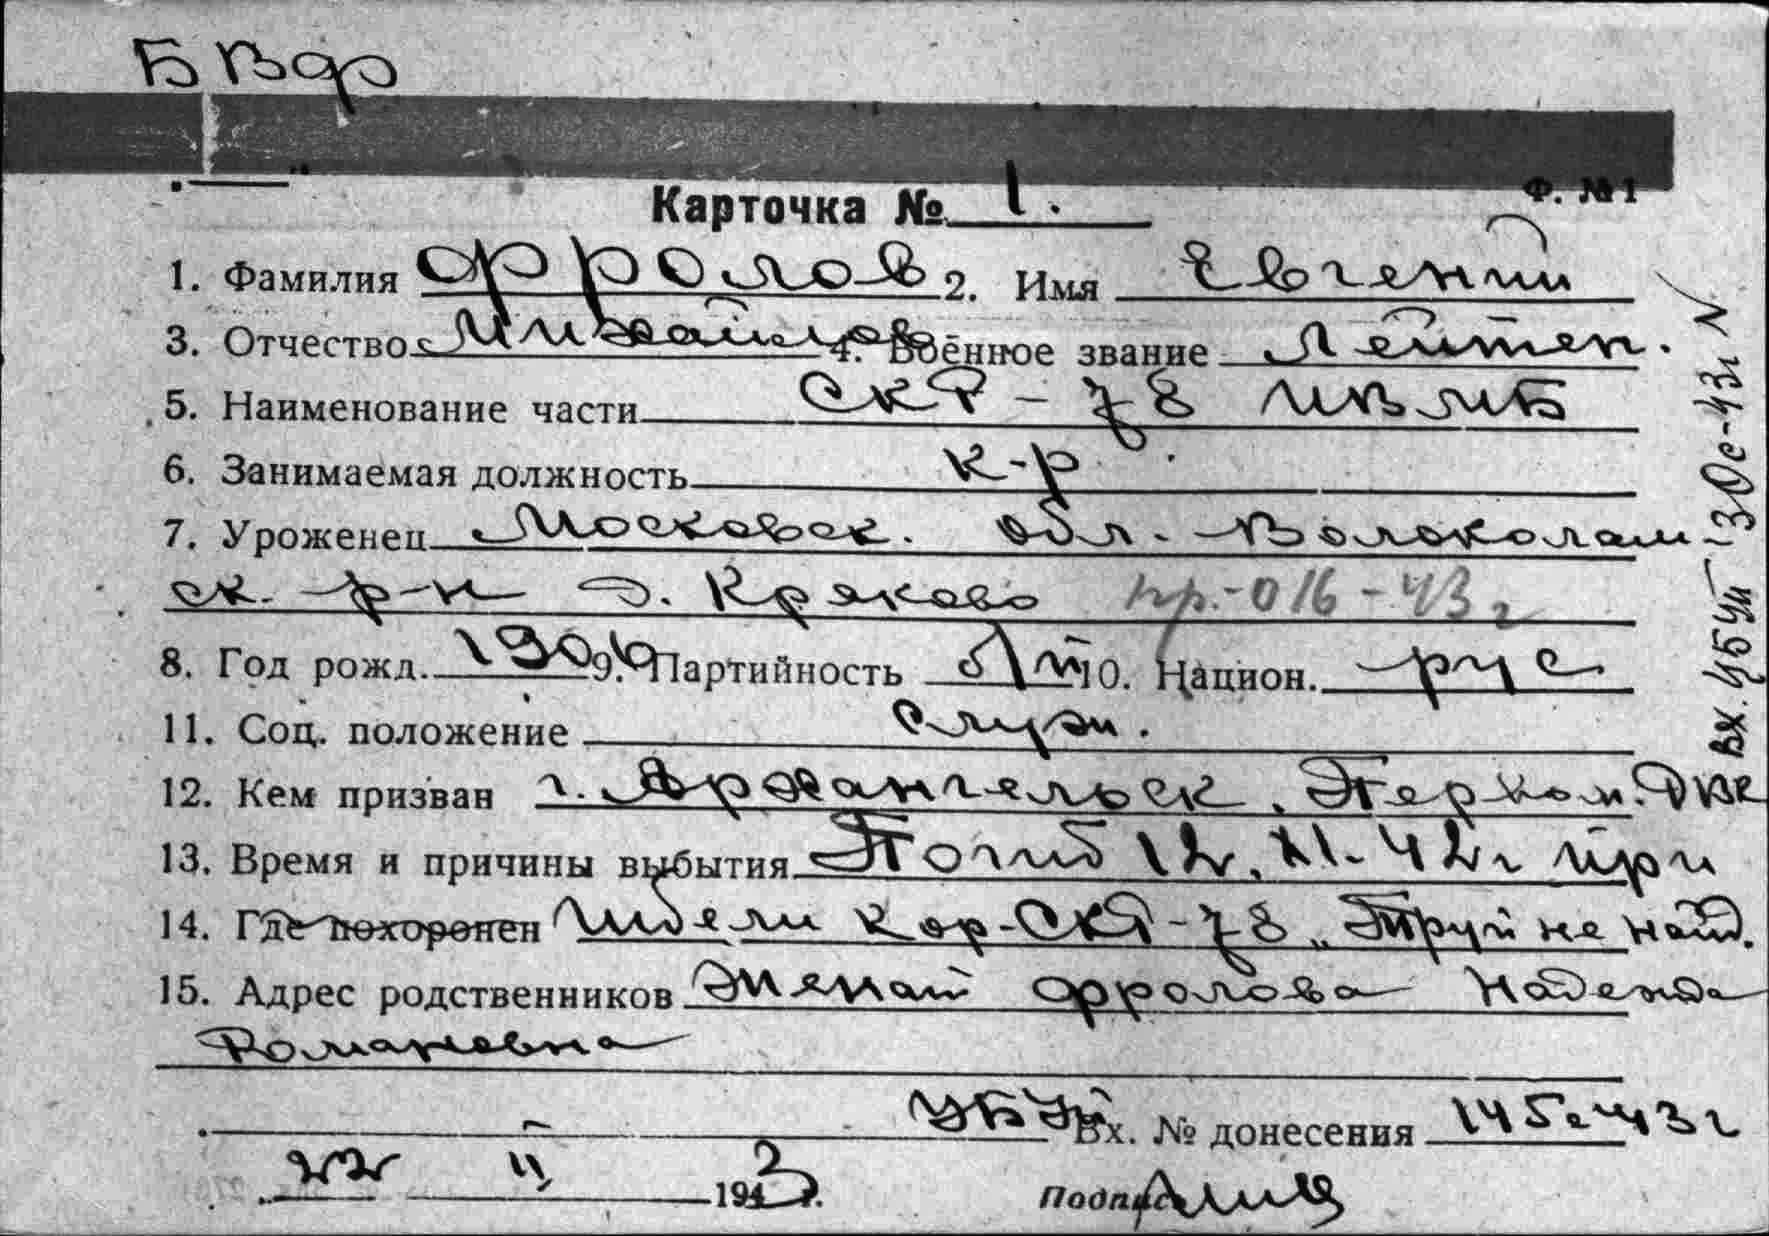 БВф
Ф. №1
Карточка № 1.
1. Фамилия Фролов 2. Имя Евгений
3. Отчество Михайлов 4. Военное звание Лейтен.
5. Наименование части СКР-78 ИВМБ
6. Занимаемая должность к-р
7. Уроженец Московск. обл. Волоколам
ск. р-н д. Кряково пр.-016-43г
8. Год рожд. 1906 9. Партийность б/п 10. Национ. рус
11. Соц. положение служ.
12. Кем призван г. Архангельск.
13. Время и причины выбытия Погиб 12.XI-42г при
14. Где похоронен гибели кор-СКР-78 „Труп не найд.
15. Адрес родственников Жена Фролова Надежда
Романовна
Вх. № донесения 145с-43г
22 II 1943 г.
Подпись
вх.